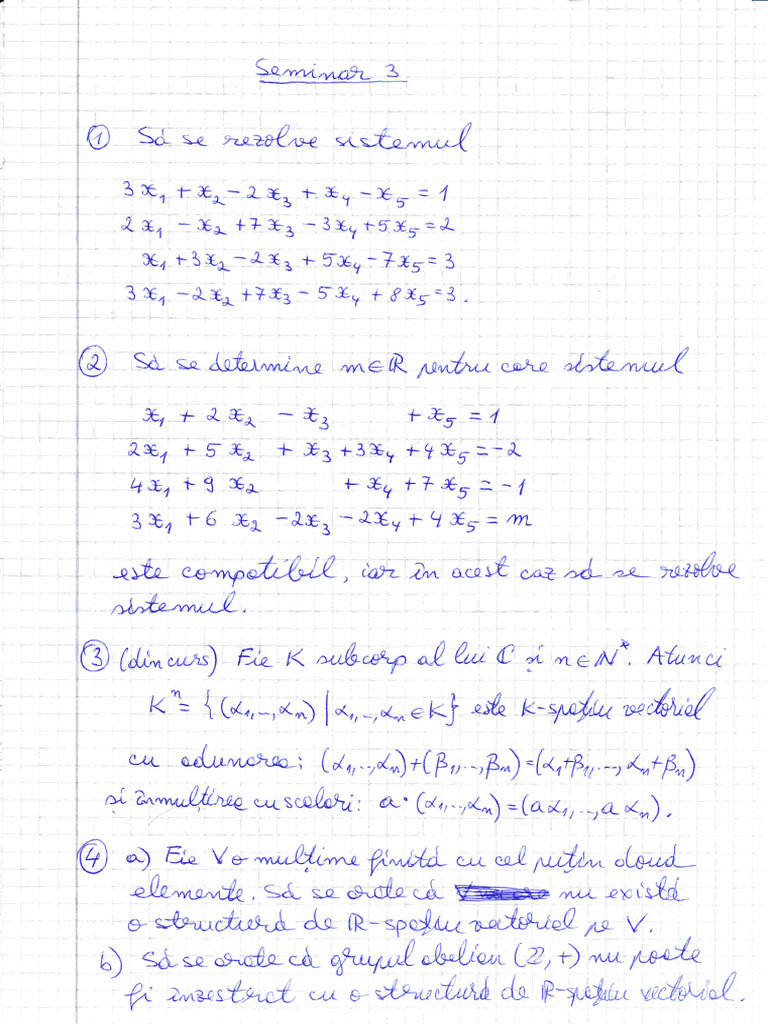 Seminar 3
① Să se rezolve sistemul
3x₁ + x₂ - 2x₃ + x₄ - x₅ = 1
2x₁ - x₂ + 7x₃ - 3x₄ + 5x₅ = 2
x₁ + 3x₂ - 2x₃ + 5x₄ - 7x₅ = 3
3x₁ - 2x₂ + 7x₃ - 5x₄ + 8x₅ = 3.
② Să se determine m∈ℝ pentru care sistemul
x₁ + 2x₂ - x₃ + x₅ = 1
2x₁ + 5x₂ + x₃ + 3x₄ + 4x₅ = -2
4x₁ + 9x₂ + x₄ + 7x₅ = -1
3x₁ + 6x₂ - 2x₃ - 2x₄ + 4x₅ = m
este compatibil, iar în acest caz să se rezolve
sistemul.
③ (din curs) Fie K subcorp al lui ℂ și n∈ℕ*. Atunci
Kⁿ = {(α₁,..,αₙ) | α₁,..,αₙ ∈ K} este K-spațiu vectorial
cu adunarea: (α₁,..,αₙ)+(β₁,..,βₙ)=(α₁+β₁,..,αₙ+βₙ)
și înmulțirea cu scalari: a·(α₁,..,αₙ)=(aα₁,..,aαₙ).
④ a) Fie V o mulțime finită cu cel puțin două
elemente. Să se arate că nu există
o structură de ℝ-spațiu vectorial pe V.
b) Să se arate că grupul abelian (ℤ,+) nu poate
fi înzestrat cu o structură de ℝ-spațiu vectorial.